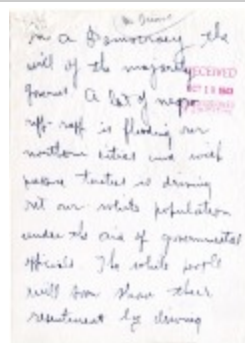 In a Democracy the
will of the majority
governs. A lot of negro
riff-raff is flooding our
northern cities and with
tactics is driving
out our white population
under the aid of governmental
officials. The white people
will soon show their
resentment by driving
RECEIVED
OCT